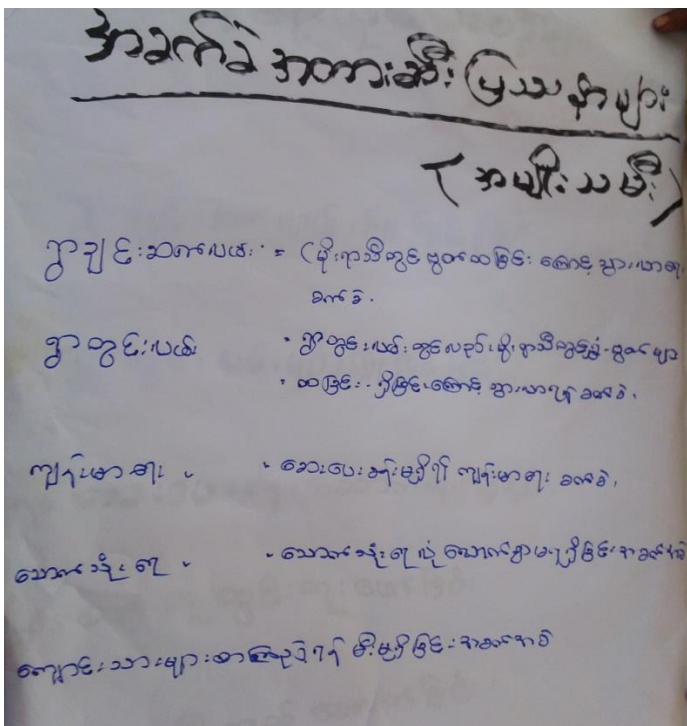 အခက်ခဲ အတားဆီး ပြဿနာများ
(အမျိုးသမီး)
ရွာချင်းဆက်လမ်း = (မိုးရာသီတွင် ဗွက်ထခြင်း ကြောင့် သွားလာရေး
ခက်ခဲ.
ရွာတွင်းလမ်း • ရွာတွင်းလမ်းတွင်လည်း မိုးရာသီတွင် ဗွက်များ
• ထခြင်း ရှိခြင်းကြောင့် သွားလာရန် ခက်ခဲ.
ကျန်းမာရေး • ဆေးပေးခန်းမရှိ၍ ကျန်းမာရေး ခက်ခဲ.
သောက်သုံးရေ • သောက်သုံးရေ လုံလောက်စွာမရှိခြင်း အခက်အခဲ
ကျောင်းသားများစာကြည့်ရန် မီးမရှိခြင်း အခက်အခဲ